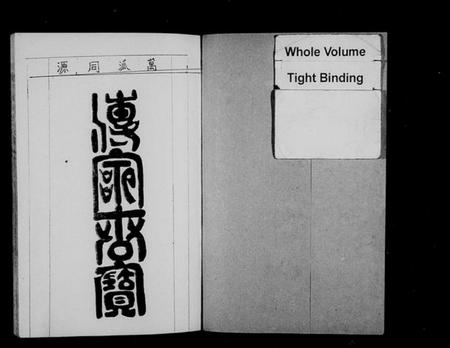 萬派同源
傳家世寶
Whole Volume
Tight Binding